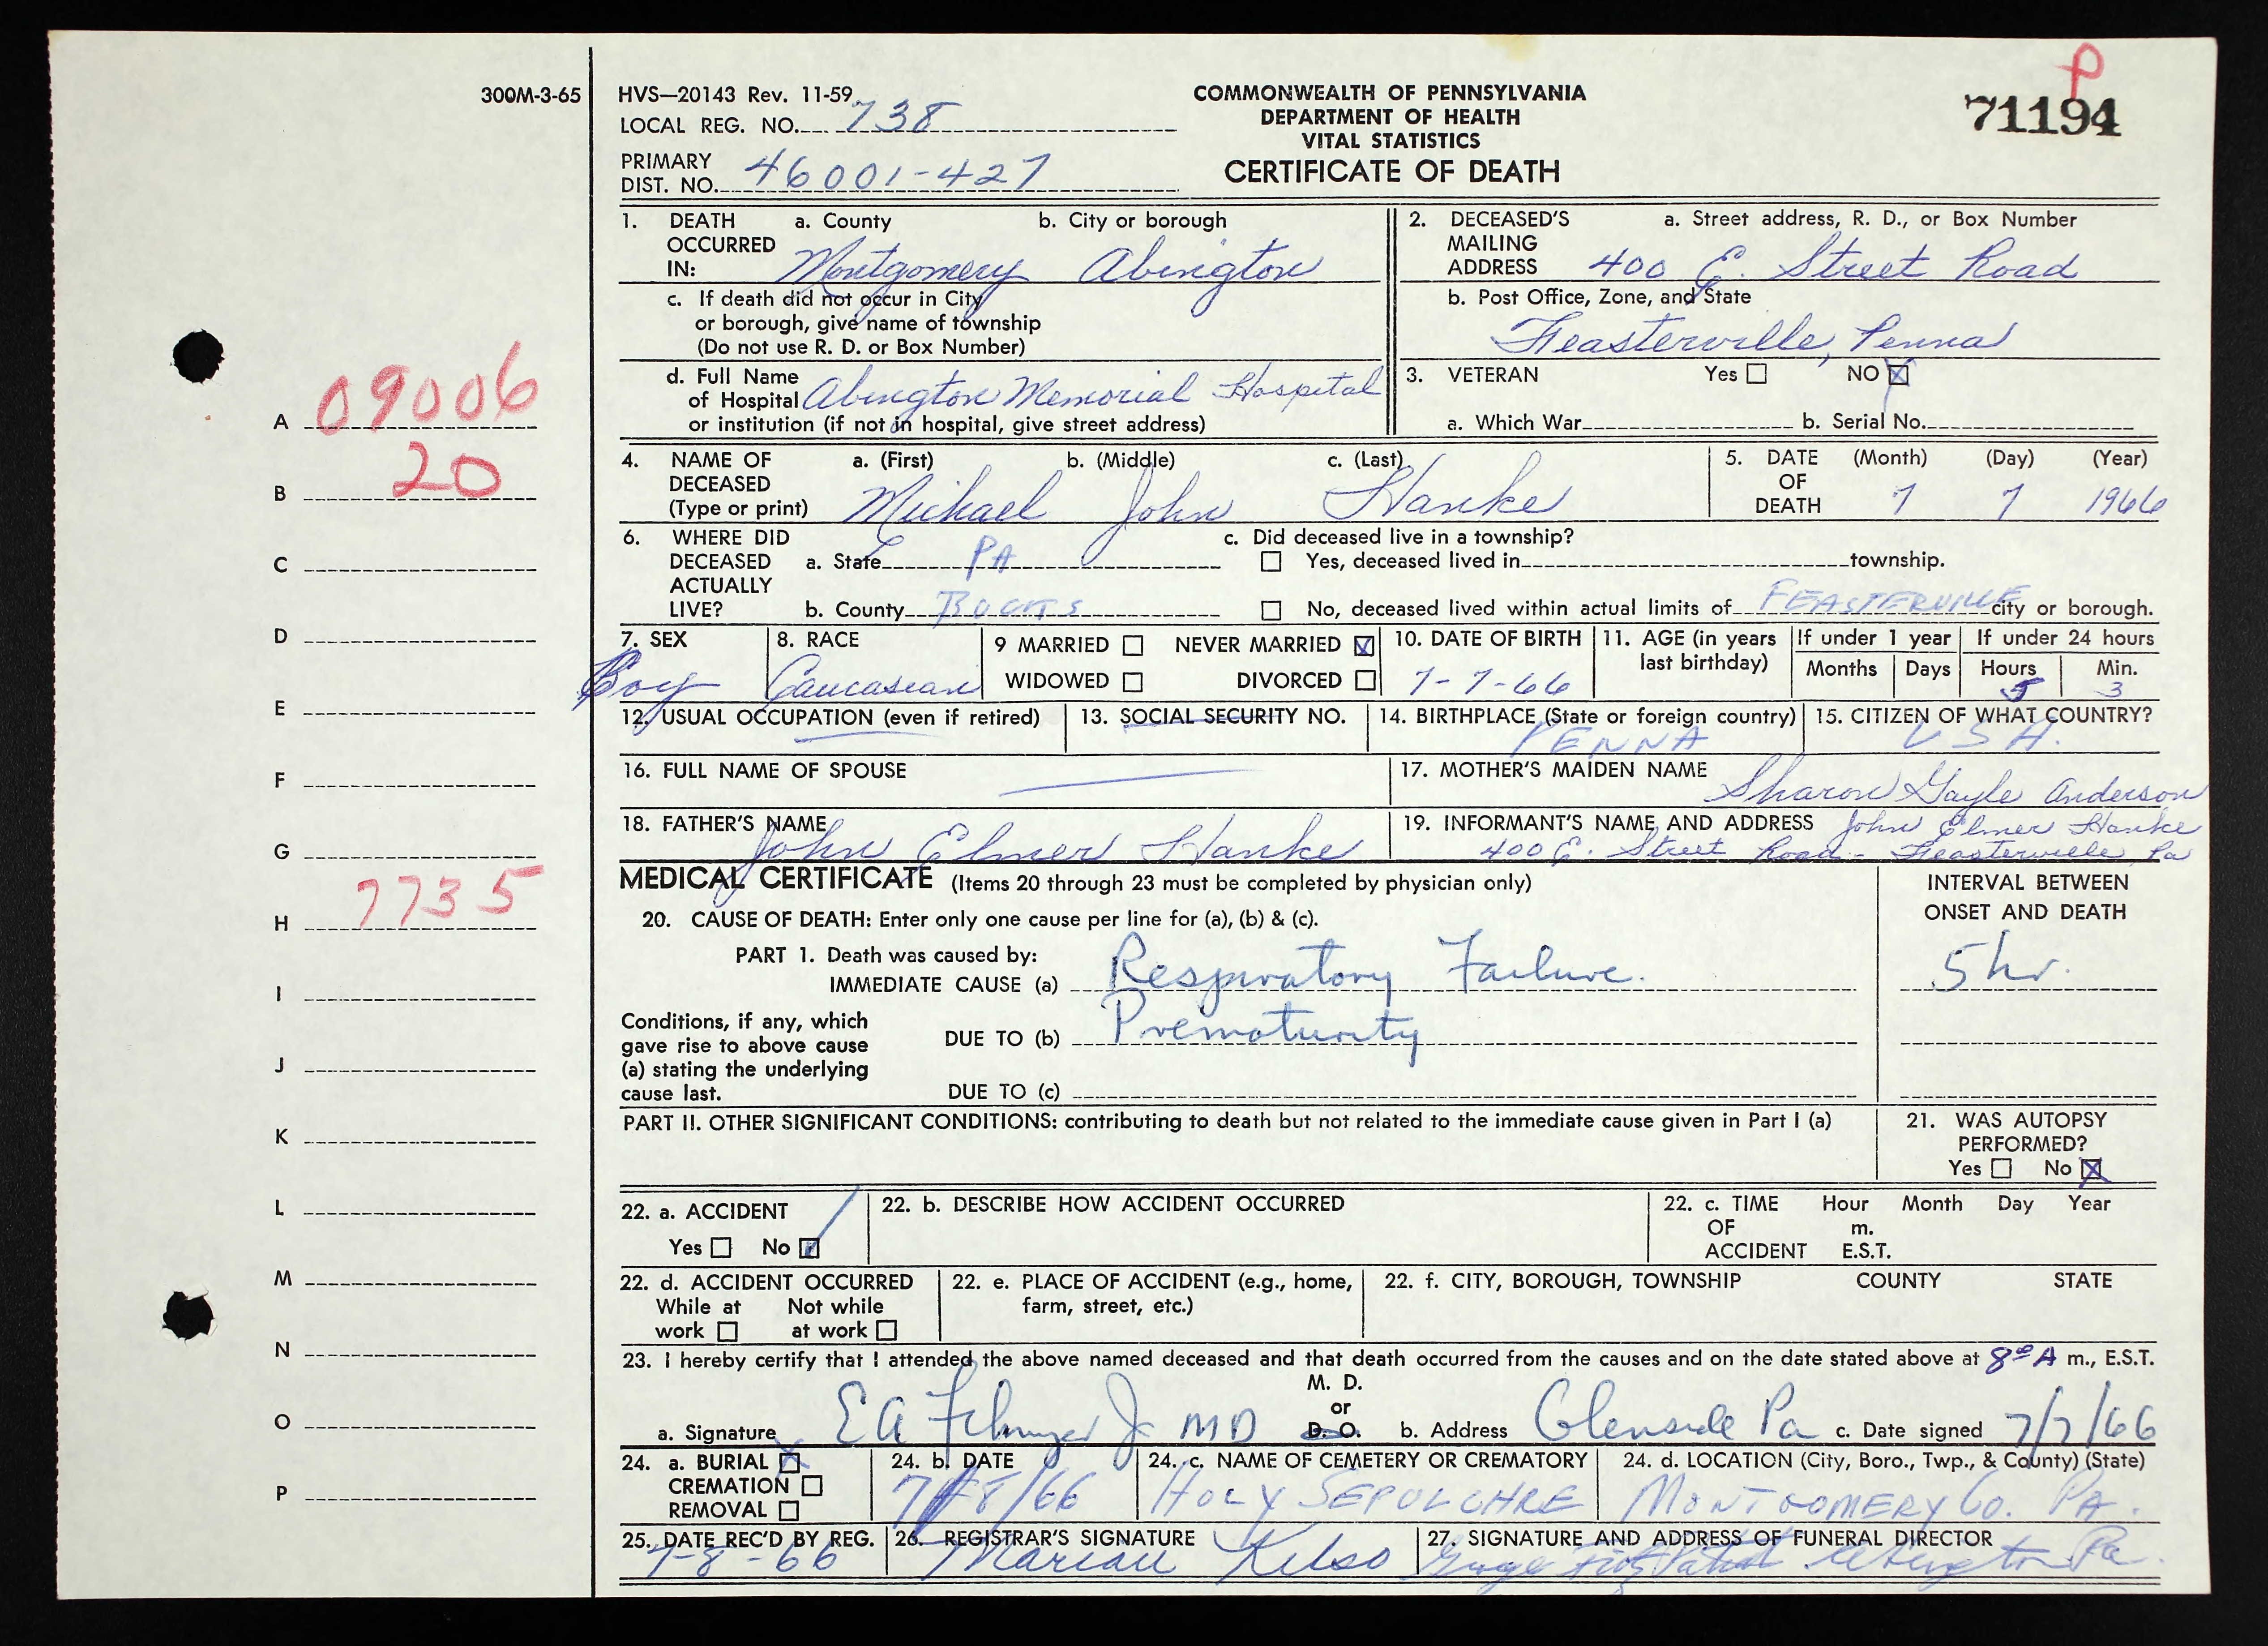 P
71194
300M-3-65
HVS—20143 Rev. 11-59
LOCAL REG. NO. 738
PRIMARY
DIST. NO. 46001-427
COMMONWEALTH OF PENNSYLVANIA
DEPARTMENT OF HEALTH
VITAL STATISTICS
CERTIFICATE OF DEATH
1. DEATH OCCURRED IN:
a. County Montgomery
b. City or borough Abington
c. If death did not occur in City
or borough, give name of township
(Do not use R. D. or Box Number)
d. Full Name
of Hospital Abington Memorial Hospital
or institution (if not in hospital, give street address)
2. DECEASED'S MAILING ADDRESS
a. Street address, R. D., or Box Number
400 E. Street Road
b. Post Office, Zone, and State
Feasterville, Penna
3. VETERAN Yes NO X
a. Which War b. Serial No.
4. NAME OF DECEASED (Type or print)
a. (First) b. (Middle) c. (Last)
Michael John Hanke
5. DATE OF DEATH (Month) (Day) (Year)
7 7 1966
6. WHERE DID DECEASED ACTUALLY LIVE?
a. State PA
b. County BUCKS
c. Did deceased live in a township?
Yes, deceased lived in township.
No, deceased lived within actual limits of FEASTERVILLE city or borough.
7. SEX
Boy
8. RACE
Caucasian
9 MARRIED NEVER MARRIED X
WIDOWED DIVORCED
10. DATE OF BIRTH
7-7-66
11. AGE (in years
last birthday)
If under 1 year
Months Days
If under 24 hours
Hours Min.
5 3
12. USUAL OCCUPATION (even if retired)
13. SOCIAL SECURITY NO.
14. BIRTHPLACE (State or foreign country)
PENNA
15. CITIZEN OF WHAT COUNTRY?
USA.
16. FULL NAME OF SPOUSE
17. MOTHER'S MAIDEN NAME
Sharon Gayle Anderson
18. FATHER'S NAME
John Elmer Hanke
19. INFORMANT'S NAME AND ADDRESS John Elmer Hanke
400 E. Street Road - Feasterville Pa
MEDICAL CERTIFICATE (Items 20 through 23 must be completed by physician only)
INTERVAL BETWEEN
ONSET AND DEATH
20. CAUSE OF DEATH: Enter only one cause per line for (a), (b) & (c).
PART 1. Death was caused by:
IMMEDIATE CAUSE (a) Respiratory Failure. 5 hr.
Conditions, if any, which
gave rise to above cause
(a) stating the underlying
cause last.
DUE TO (b) Prematurity
DUE TO (c)
PART II. OTHER SIGNIFICANT CONDITIONS: contributing to death but not related to the immediate cause given in Part I (a)
21. WAS AUTOPSY
PERFORMED?
Yes No X
22. a. ACCIDENT
Yes No
22. b. DESCRIBE HOW ACCIDENT OCCURRED
22. c. TIME Hour Month Day Year
OF m.
ACCIDENT E.S.T.
22. d. ACCIDENT OCCURRED
While at Not while
work at work
22. e. PLACE OF ACCIDENT (e.g., home,
farm, street, etc.)
22. f. CITY, BOROUGH, TOWNSHIP COUNTY STATE
23. I hereby certify that I attended the above named deceased and that death occurred from the causes and on the date stated above at 8⁰⁰ A m., E.S.T.
M. D.
or
D. O.
a. Signature E A Jr MD
b. Address Glenside Pa
c. Date signed 7/7/66
24. a. BURIAL X
CREMATION
REMOVAL
24. b. DATE
7/8/66
24. c. NAME OF CEMETERY OR CREMATORY
HOLY SEPULCHRE
24. d. LOCATION (City, Boro., Twp., & County) (State)
MONTGOMERY Co. PA.
25. DATE REC'D BY REG.
7-8-66
26. REGISTRAR'S SIGNATURE
Marian Kelso
27. SIGNATURE AND ADDRESS OF FUNERAL DIRECTOR
George Fitzpatrick Abington Pa.
A 09006
B 20
C
D
E
F
G
H 7735
I
J
K
L
M
N
O
P